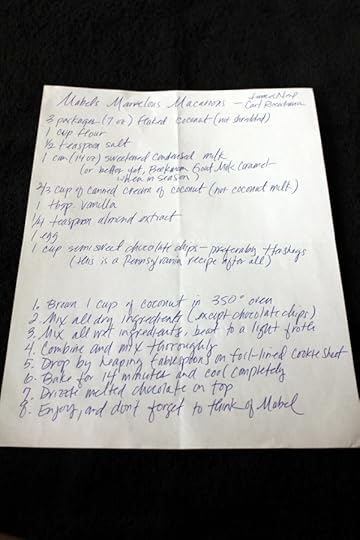 Mabels Marvelous Macaroons —
3 packages (7 oz) flaked coconut (not shredded)
1 cup flour
½ teaspoon salt
1 can (14 oz) sweetened condensed milk
(or better yet, Beekman Goat Milk Caramel
when in season)
2/3 cup of canned cream of coconut (not coconut milk)
1 tbsp. vanilla
1/4 teaspoon almond extract
1 egg
1 cup semi sweet chocolate chips - preferably Hersheys
(this is a Pennsylvania recipe after all)
1. Brown 1 cup of coconut in 350° oven
2. Mix all dry ingredients (except chocolate chips)
3. Mix all wet ingredients, beat to a light froth
4. Combine and mix thoroughly
5. Drop by heaping tablespoons on foil-lined cookie sheet
6. Bake for 14 minutes and cool completely
7. Drizzle melted chocolate on top
8. Enjoy, and don't forget to think of Mabel